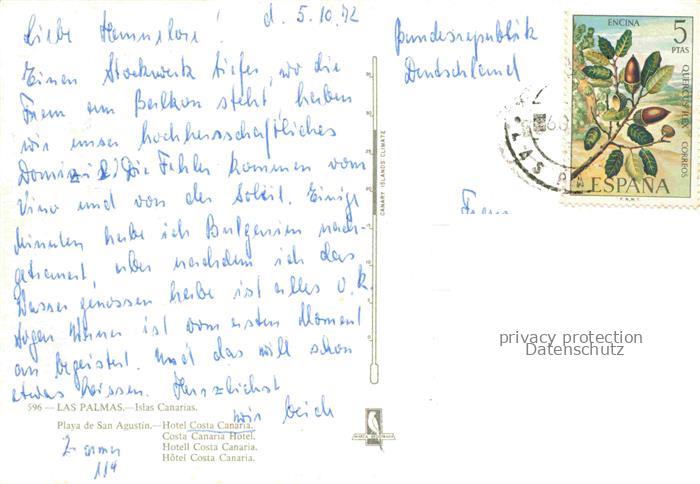 d. 5.10.72
Liebe Hannelore!
Einen Stockwerk tiefer, wo die
Frau am Balkon steht haben
wir unser hochherrschaftliches
Domizil! Die Fehler kommen vom
Vino und von der Soleil. Einige
Minuten habe ich Bulgarien nach-
getrauert, aber nachdem ich das
Wasser genossen habe ist alles o.k.
Hogen Werner ist vom ersten Moment
an begeistert. Und das will schon
etwas heissen. Herzlichst
wir beich
596 — LAS PALMAS.—Islas Canarias.
Playa de San Agustín.—Hotel Costa Canaria.
Costa Canaria Hotel.
Hotell Costa Canaria.
Hôtel Costa Canaria.
114
CANARY ISLANDS CLIMATE
Bundesrepublik
Deutschland
Frau
ENCINA
5
PTAS
QUERCUS ILEX
CORREOS
ESPAÑA
F.N.M.T.
LAS PA
privacy protection
Datenschutz